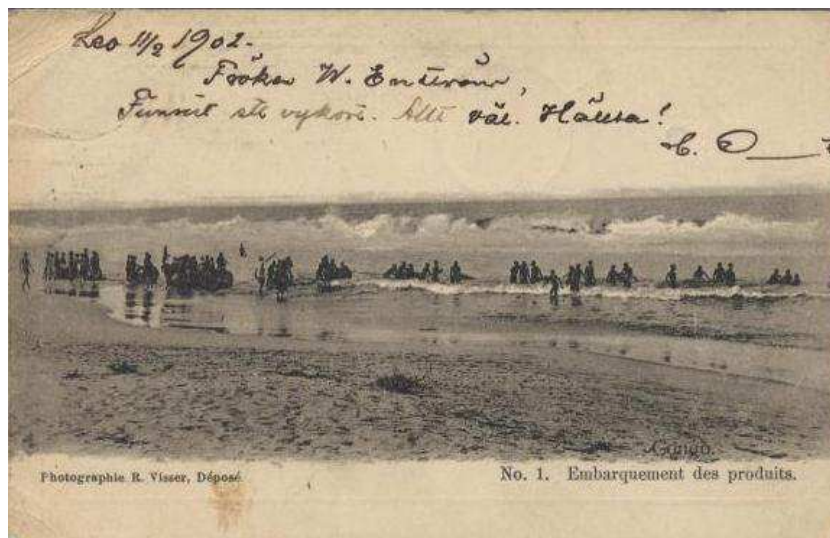 Leo 11/2 1902.
Fröken W.
Funnit ste vykort. Allt väl. Hälsa!
Photographie R. Visser, Déposé
No. 1. Embarquement des produits.